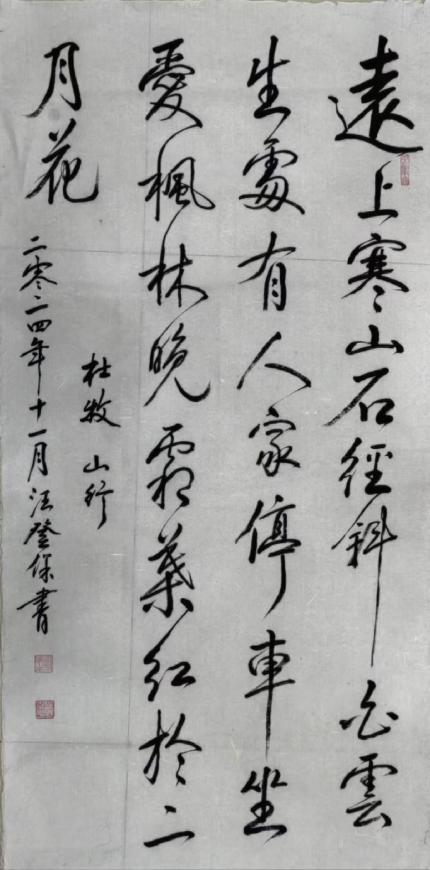 遠上寒山石徑斜白雲
生處有人家停車坐
愛楓林晚霜葉紅於二
月花
杜牧 山行
二零二四年十一月汪登保書